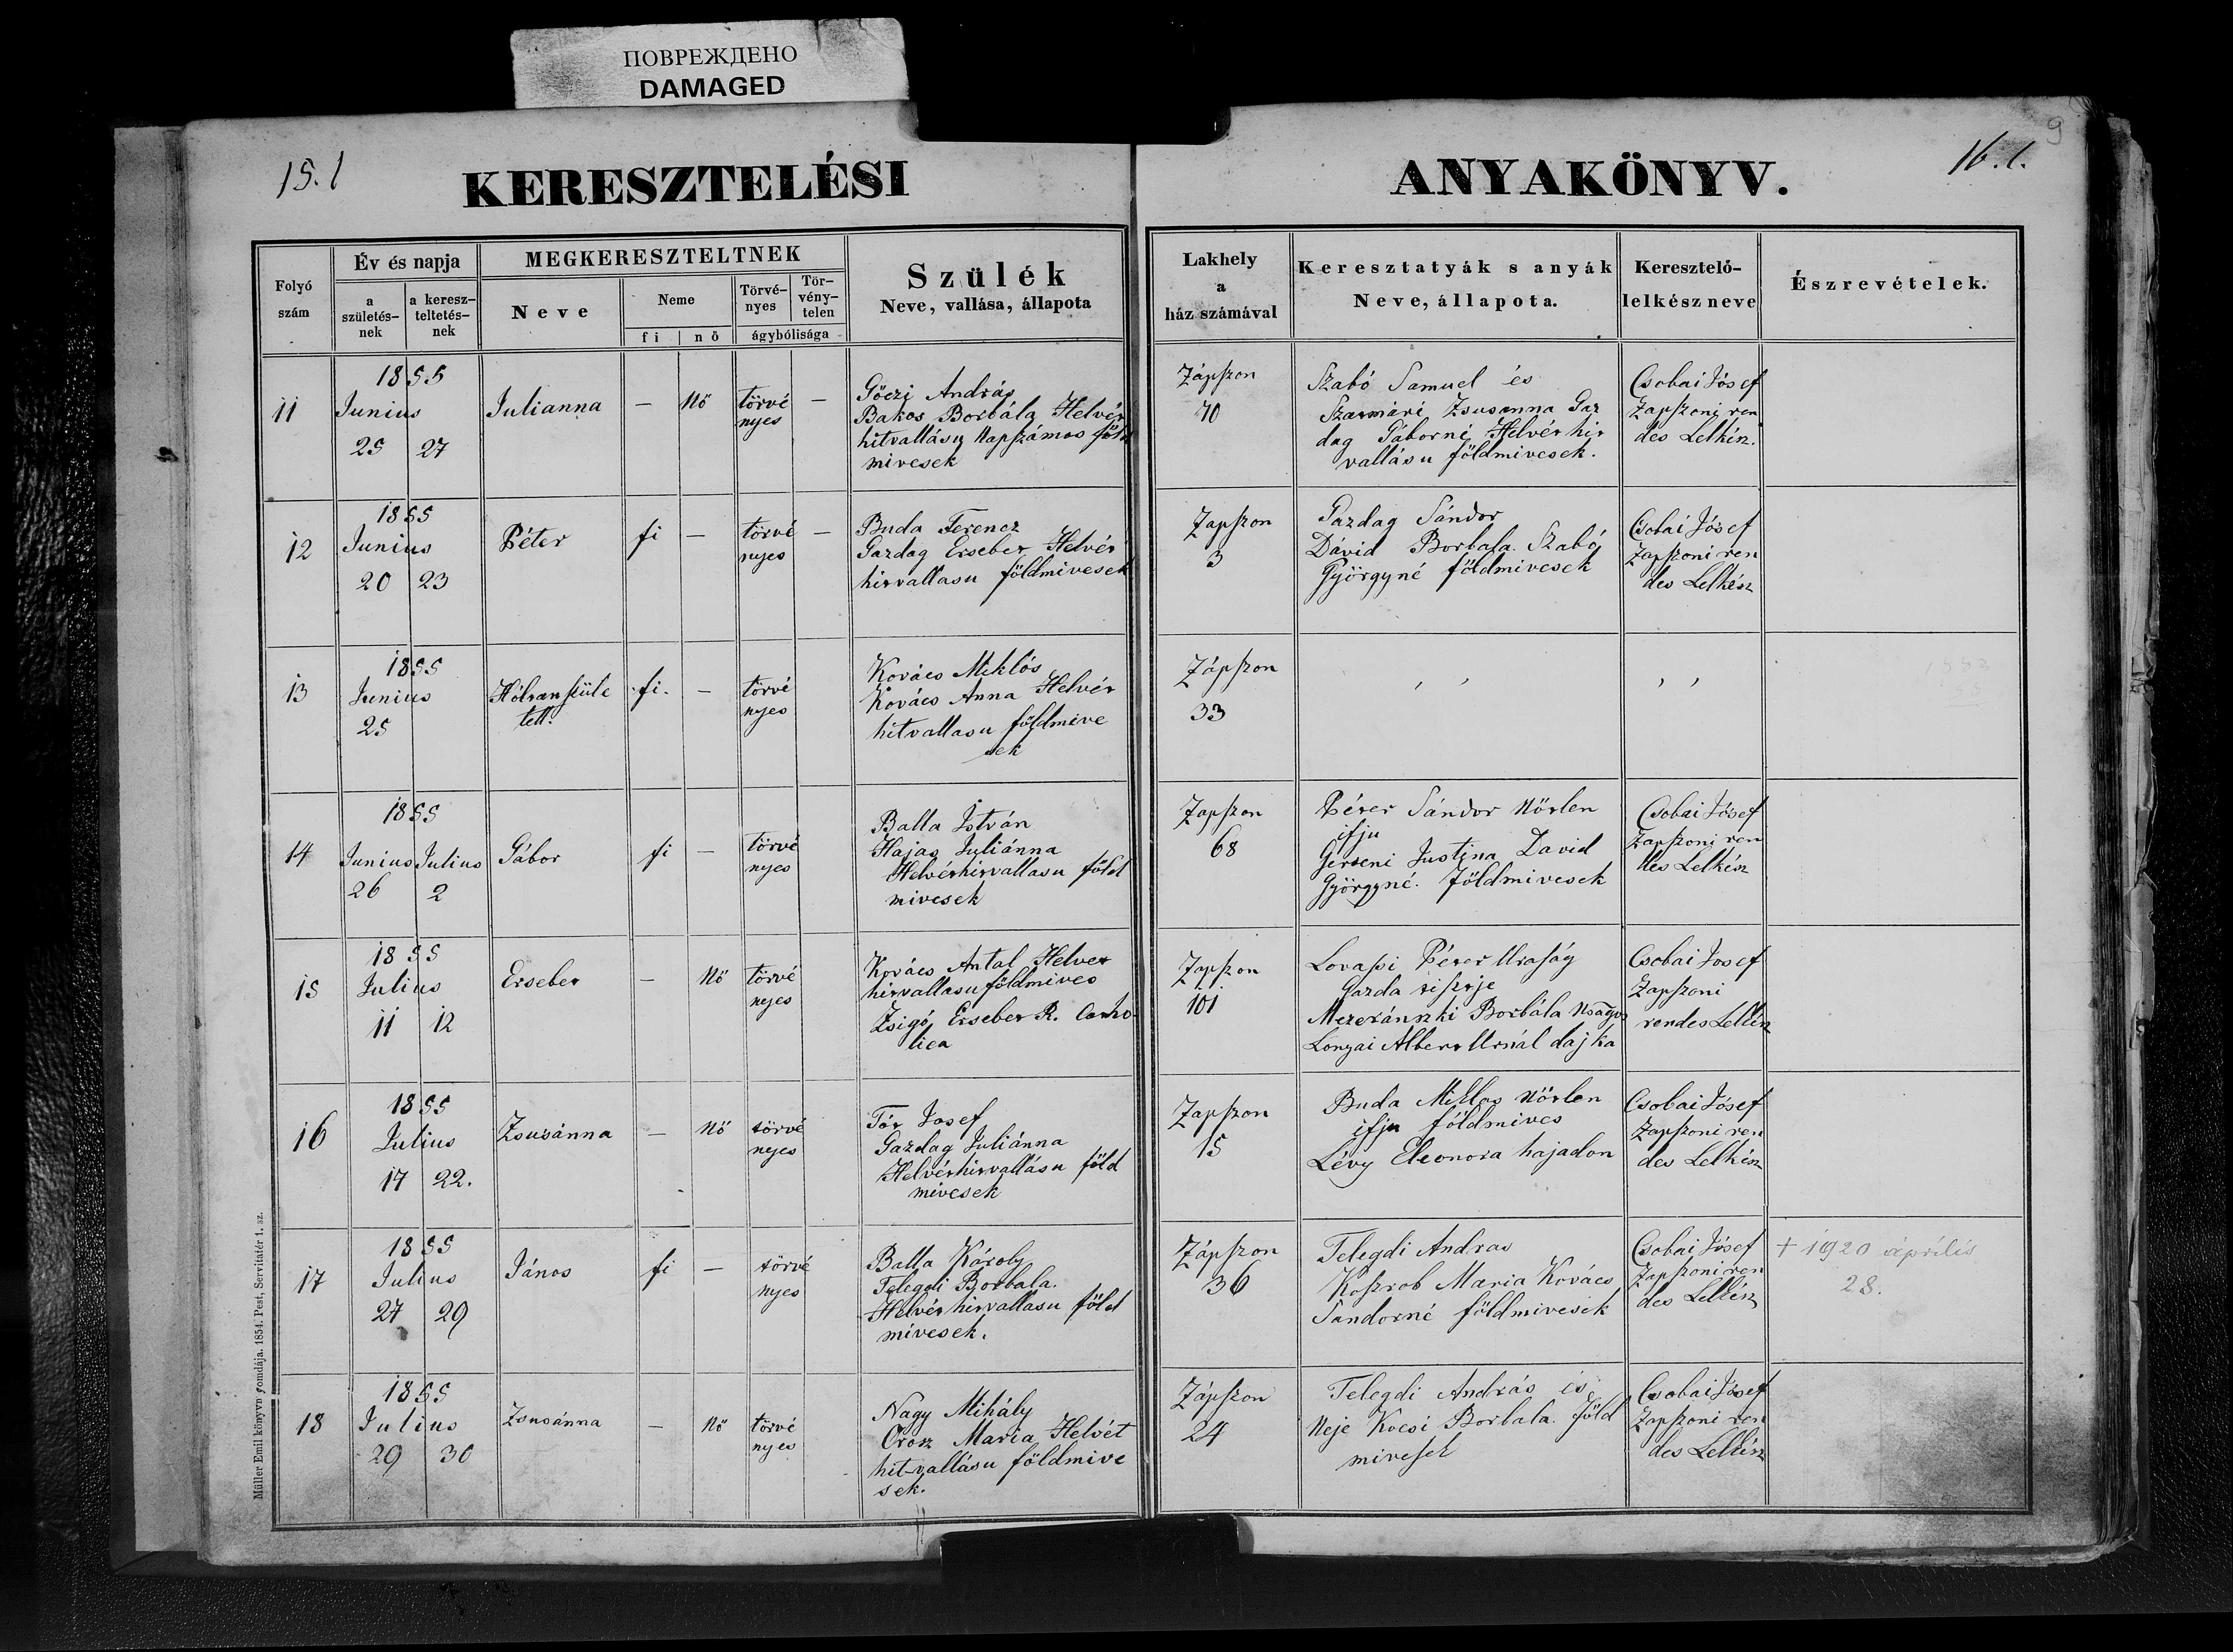 ПОВРЕЖДЕНО
DAMAGED
15. l
KERESZTELÉSI
Folyó szám
Év és napja
a születés-nek
a keresz-teltetés-nek
MEGKERESZTELTNEK
Neve
Neme
fi
nő
Törvé-nyes
Tör-vény-telen
ágybólisága
Szülék
Neve, vallása, állapota
9
16. l.
ANYAKÖNYV.
Lakhely
a
ház számával
Keresztatyák s anyák
Neve, állapota.
Keresztelő-
lelkész neve
Észrevételek.
11
1855
Junius
25 27
Julianna
— Nő
törvé
nyes
—
Göczi András
Bakos Borbála Helvét
hitvallásu Napszámos föld
mivesek
Zápszon
70
Szabó Samuel és
Szatmári Zsusanna Gaz
dag Gáborné Helvét hit
vallásu földmivesek.
Csobai Jósef
Zapszoni ren
des Lelkész.
12
1855
Junius
20 23
Péter
fi —
törvé
nyes
—
Buda Ferencz
Gazdag Ersebet Helvét
hitvallasu földmivesek
Zapszon
3
Gazdag Sándor
Dávid Borbala. Szabó
Györgyné földmivesek
Csobai Jósef
Zapszoni ren
des Lelkész
13
1855
Junius
25
Hólvanszüle
tett.
fi. —
törvé
nyes
Kovács Miklós
Kovács Anna Helvét
hitvallasu földmive
sek
Zápszon
33
, ,
, ,
14
1855
Junius Julius
26 2
Gábor
fi —
törvé
nyes
Balla István
Hajas Juliánna
Helvéthitvallasu föld
mivesek
Zapszon
68
Péter Sándor Nőtlen
ifju
Getseni Justina David
Györgyné. földmivesek
Csobai Jósef
Zapszoni ren
des Lelkész
15
1855
Julius
11 12
Ersebet
— Nő
törvé
nyes
Kovács Antal Helvet
hitvallasu földmives
Zsigó Ersebet R. Catho
lica
Zapszon
101
Lovassi Péter Uraság
Gazda tisztje
Mezeránszki Borbála Nságos
Lonyai Albert Urnál dajka
Csobai Josef
Zapszoni
rendes Lelkész
16
1855
Julius
17 22.
Zsusánna
— Nő
törvé
nyes
Tót Josef
Gazdag Juliánna
Helvéthitvallásu föld
mivesek
Zapszon
15
Buda Miklos Nőtlen
ifju földmives
Lévy Eleonora hajadon
Csobai Jósef
Zapszoni ren
des Lelkész
17
1855
Julius
27 29
János
fi —
törvé
nyes
Balla Károly
Telegdi Borbala.
Helvét hitvallasu föld
mivesek.
Zápszon
36
Telegdi Andras
Kosztob Maria Kovács
Sandorné földmivesek
Csobai Jósef
Zapszoni ren
des Lelkész
† 1920 április
28.
18
1855
Julius
29 30
Zsusánna
— Nő
törvé
nyes
Nagy Mihály
Orosz Maria Helvét
hit-vallásu földmive
sek.
Zápszon
24
Telegdi András és
Neje Kocsi Borbala. föld
mivesek
Csobai Jósef
Zapszoni ren
des Lelkész
Müller Emil könyvnyomdája. 1854. Pest, Servitatér 1. sz.